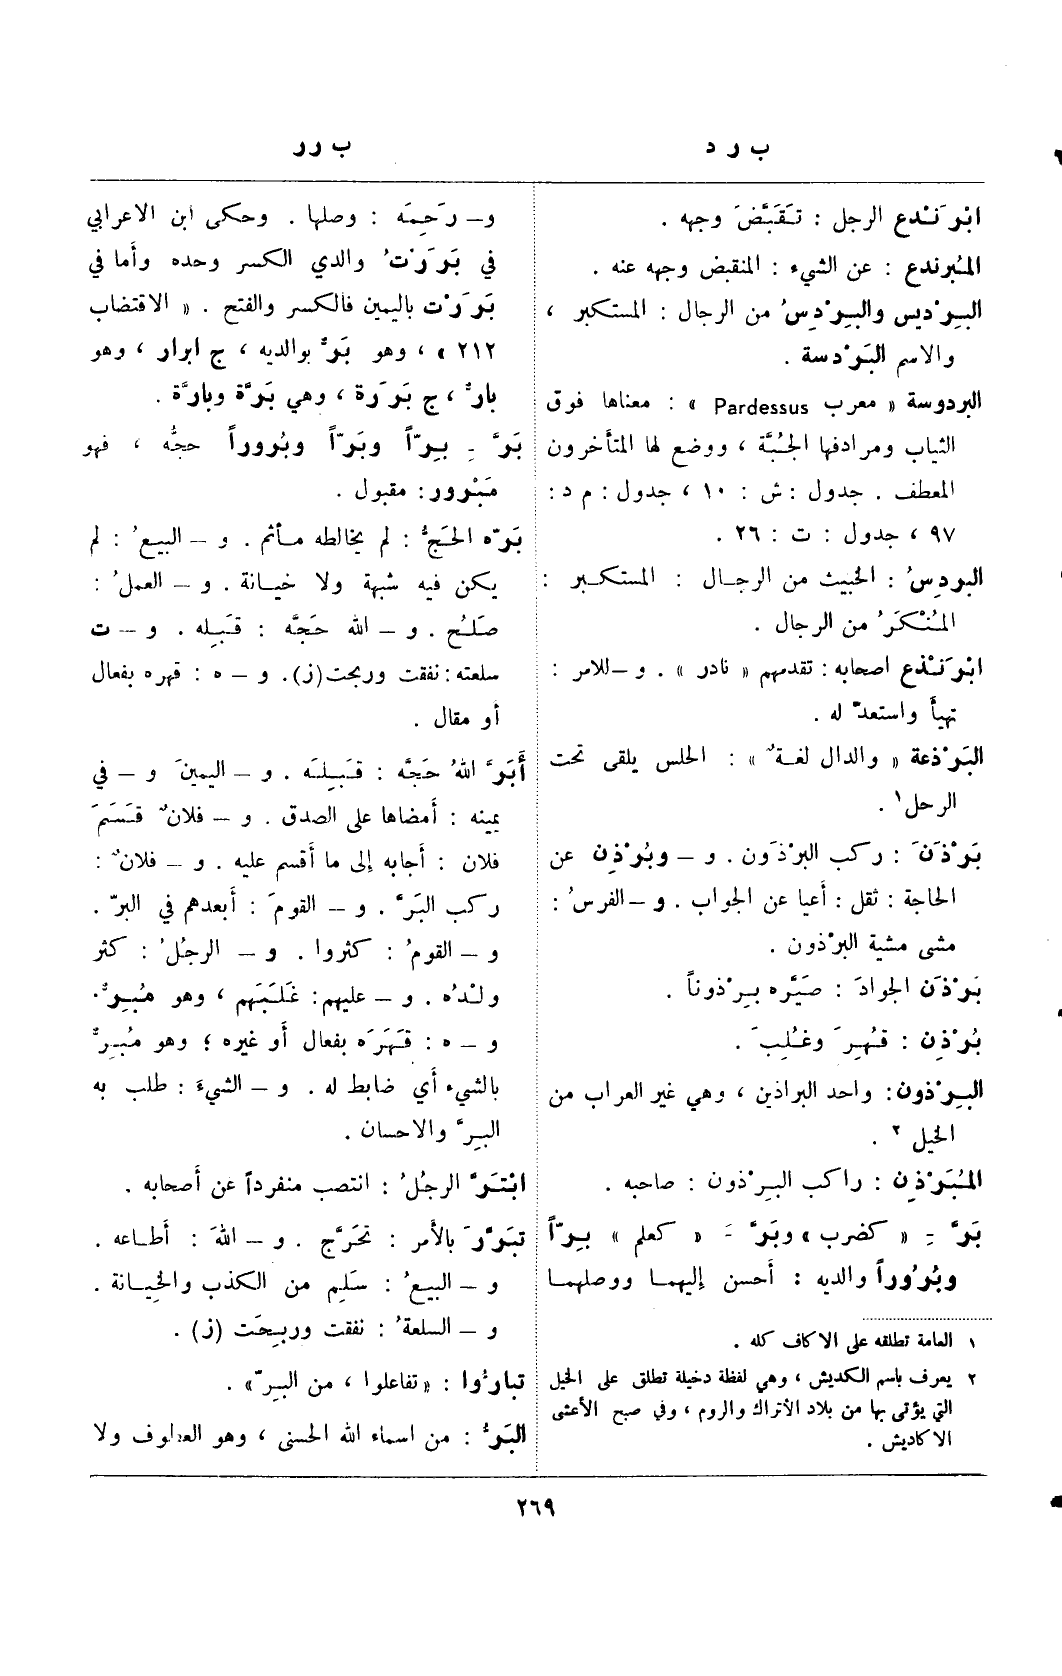 ب ر د
ب رر
ابْرَنْدع الرجل : تَقَبَّضَ وجهه .
المُبرندع : عن الشيء : المنقبض وجهه عنه .
البِرْديس والبِرْدِسُ من الرجال : المستكبر ،
والاسم البَرْدسة .
البردوسة « معرب Pardessus » : معناها فوق
الثياب ومرادفها الجُبَّة ، ووضع لها المتأخرون
المعطف . جدول : ش : ١٠ ، جدول : م د :
٩٧ ، جدول : ت : ٢٦ .
البردِسُ : الخبيث من الرجال : المستكبر :
المُنْكَرُ من الرجال .
ابْرَنْذع اصحابه : تقدمهم « نادر » . و – للامر :
تهيأ واستعدّ له .
البَرْذعة « والدال لغةٌ » : الحلس يلقى تحت
الرحل١ .
بَرْذَنَ : ركب البرْذَون . و – وبُرْذِن عن
الحاجة : ثقل : أعيا عن الجواب . و – الفرسُ :
مشى مشية البرْذون .
بَرْذَن الجوادَ : صَيَّره بِرْذوناً .
بُرْذِن : قُهِرَ وغُلِبَ .
البِرْذون : واحد البراذين ، وهي غير العراب من
الخيل ٢ .
المُبَرْذِن : راكب البِرْذون : صاحبه .
بَرَّ ـِ « كضرب » وبَرَّ ـَ « كعلم » بِرّاً
وبُرُوراً والديه : أحسن إليهما ووصلهما
١ العامة تطلقه على الاكاف كله .
٢ يعرف باسم الكديش ، وهي لفظة دخيلة تطلق على الخيل
التي يؤتى بها من بلاد الأتراك والروم ، وفي صبح الأعشى
الاكاديش .
و – رَحِمَه : وصلها . وحكى ابن الاعرابي
في بَرَرْتُ والدي الكسر وحده وأما في
بَرَرْت باليمين فالكسر والفتح . « الاقتضاب
٢١٢ » ، وهو بَرٌّ بوالديه ، ج ابرار ، وهو
بارٌّ ، ج بَرَرة ، وهي بَرَّة وبارَّة .
بَرَّ ـِ بِرّاً وبَرّاً وبُروراً حجُّه ، فهو
مَبْرور : مقبول .
بَرّه الحَجُّ : لم يخالطه مأثم . و – البيعُ : لم
يكن فيه شبهة ولا خيانة . و – العملُ :
صَلُح . و – الله حَجَّه : قَبِله . و – ت
سلعته : نفقت وربحت (ز) . و – ه : قهره بفعال
أو مقال .
أَبَرَّ اللهُ حَجَّه : قَبِلَه . و – اليمينَ و – في
يمينه : أمضاها على الصدق . و – فلانٌ قَسَمَ
فلان : أجابه إلى ما أقسم عليه . و – فلانٌ :
ركب البَرَّ . و – القومَ : أبعدهم في البرّ .
و – القومُ : كثروا . و – الرجُلُ : كثر
ولْدُه . و – عليهم : غَلَبَهم ، وهو مُبِرٌّ .
و – ه : قَهَرَه بفعال أو غيره ؛ وهو مُبِرٌّ
بالشيء أي ضابط له . و – الشيءَ : طلب به
البِرَّ والاحسان .
ابْتَرَّ الرجُلُ : انتصب منفرداً عن أصحابه .
تبَرَّرَ بالأمر : تحَرَّج . و – اللهَ : أطاعه .
و – البيعُ : سَلِم من الكذب والخيانة .
و – السلعةُ : نفقت وربِحَت (ز) .
تبارُّوا : «تفاعلوا ، من البِرّ» .
البَرُّ : من اسماء الله الحسنى ، وهو العطوف ولا
٢٦٩